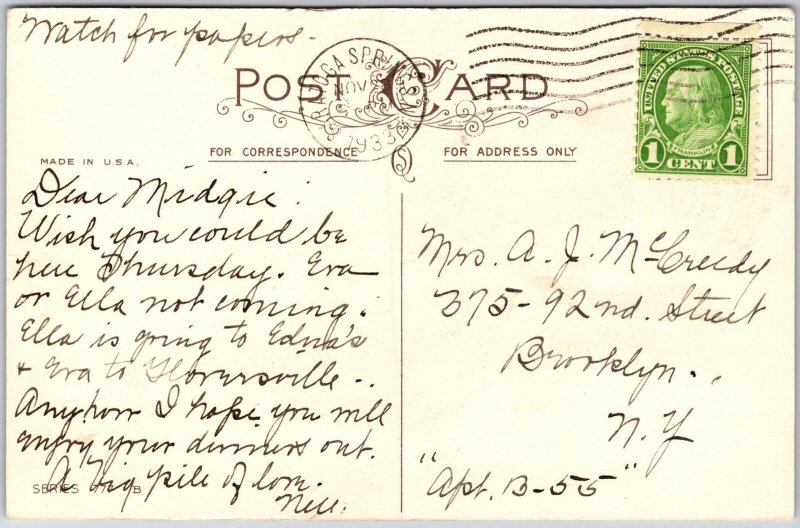 Watch for papers-
POST CARD
SPR
NOV
1933
UNITED STATES POSTAGE
FRANKLIN
1 CENT 1
MADE IN U.S.A.
FOR CORRESPONDENCE
FOR ADDRESS ONLY
Dear Midgie:
Wish you could be
here Thursday. Eva
or Ella not coming.
Ella is going to Edna's
+ Eva to Gloversville-.
Anyhow I hope you will
enjoy your dinners out.
A big pile of love.
Nell.
SERIES B
Mrs. A. J. McCreedy
375-92nd. Street
Brooklyn.
N.Y
"Apt. B-55"